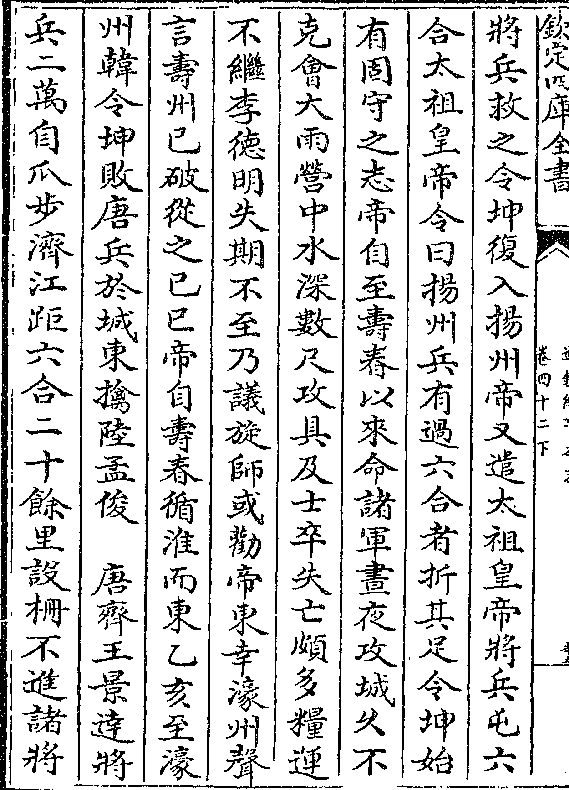 欽定四庫全書
卷四十二下
將兵救之令坤復入揚州帝又遣太祖皇帝將兵屯六
合太祖皇帝令曰揚州兵有過六合者折其足令坤始
有固守之志帝自至壽春以來命諸軍晝夜攻城久不
克會大雨營中水深數尺攻具及士卒失亡頗多糧運
不繼李德明失期不至乃議旋師或勸帝東幸濠州聲
言壽州已破從之己巳帝自壽春循淮而東乙亥至濠
州韓令坤敗唐兵於城東擒陸孟俊　唐齊王景達將
兵二萬自瓜步濟江距六合二十餘里設柵不進諸將